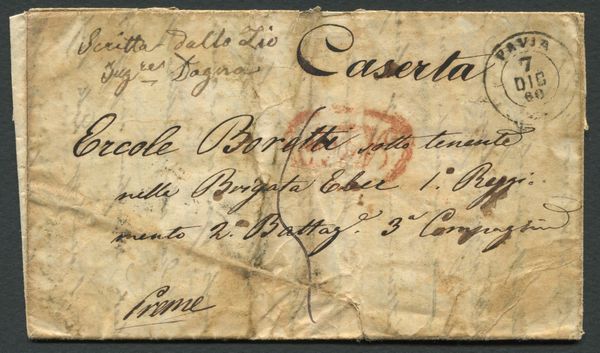 Scritta dallo Zio
Ing.re Dagna
Caserta
PAVIA
7
DIC
60
Ercole Boratti sotto tenente
nella Brigata Eber 1.° Reggi-
mento 2.° Battag.e 3.a Compagnia
Preme